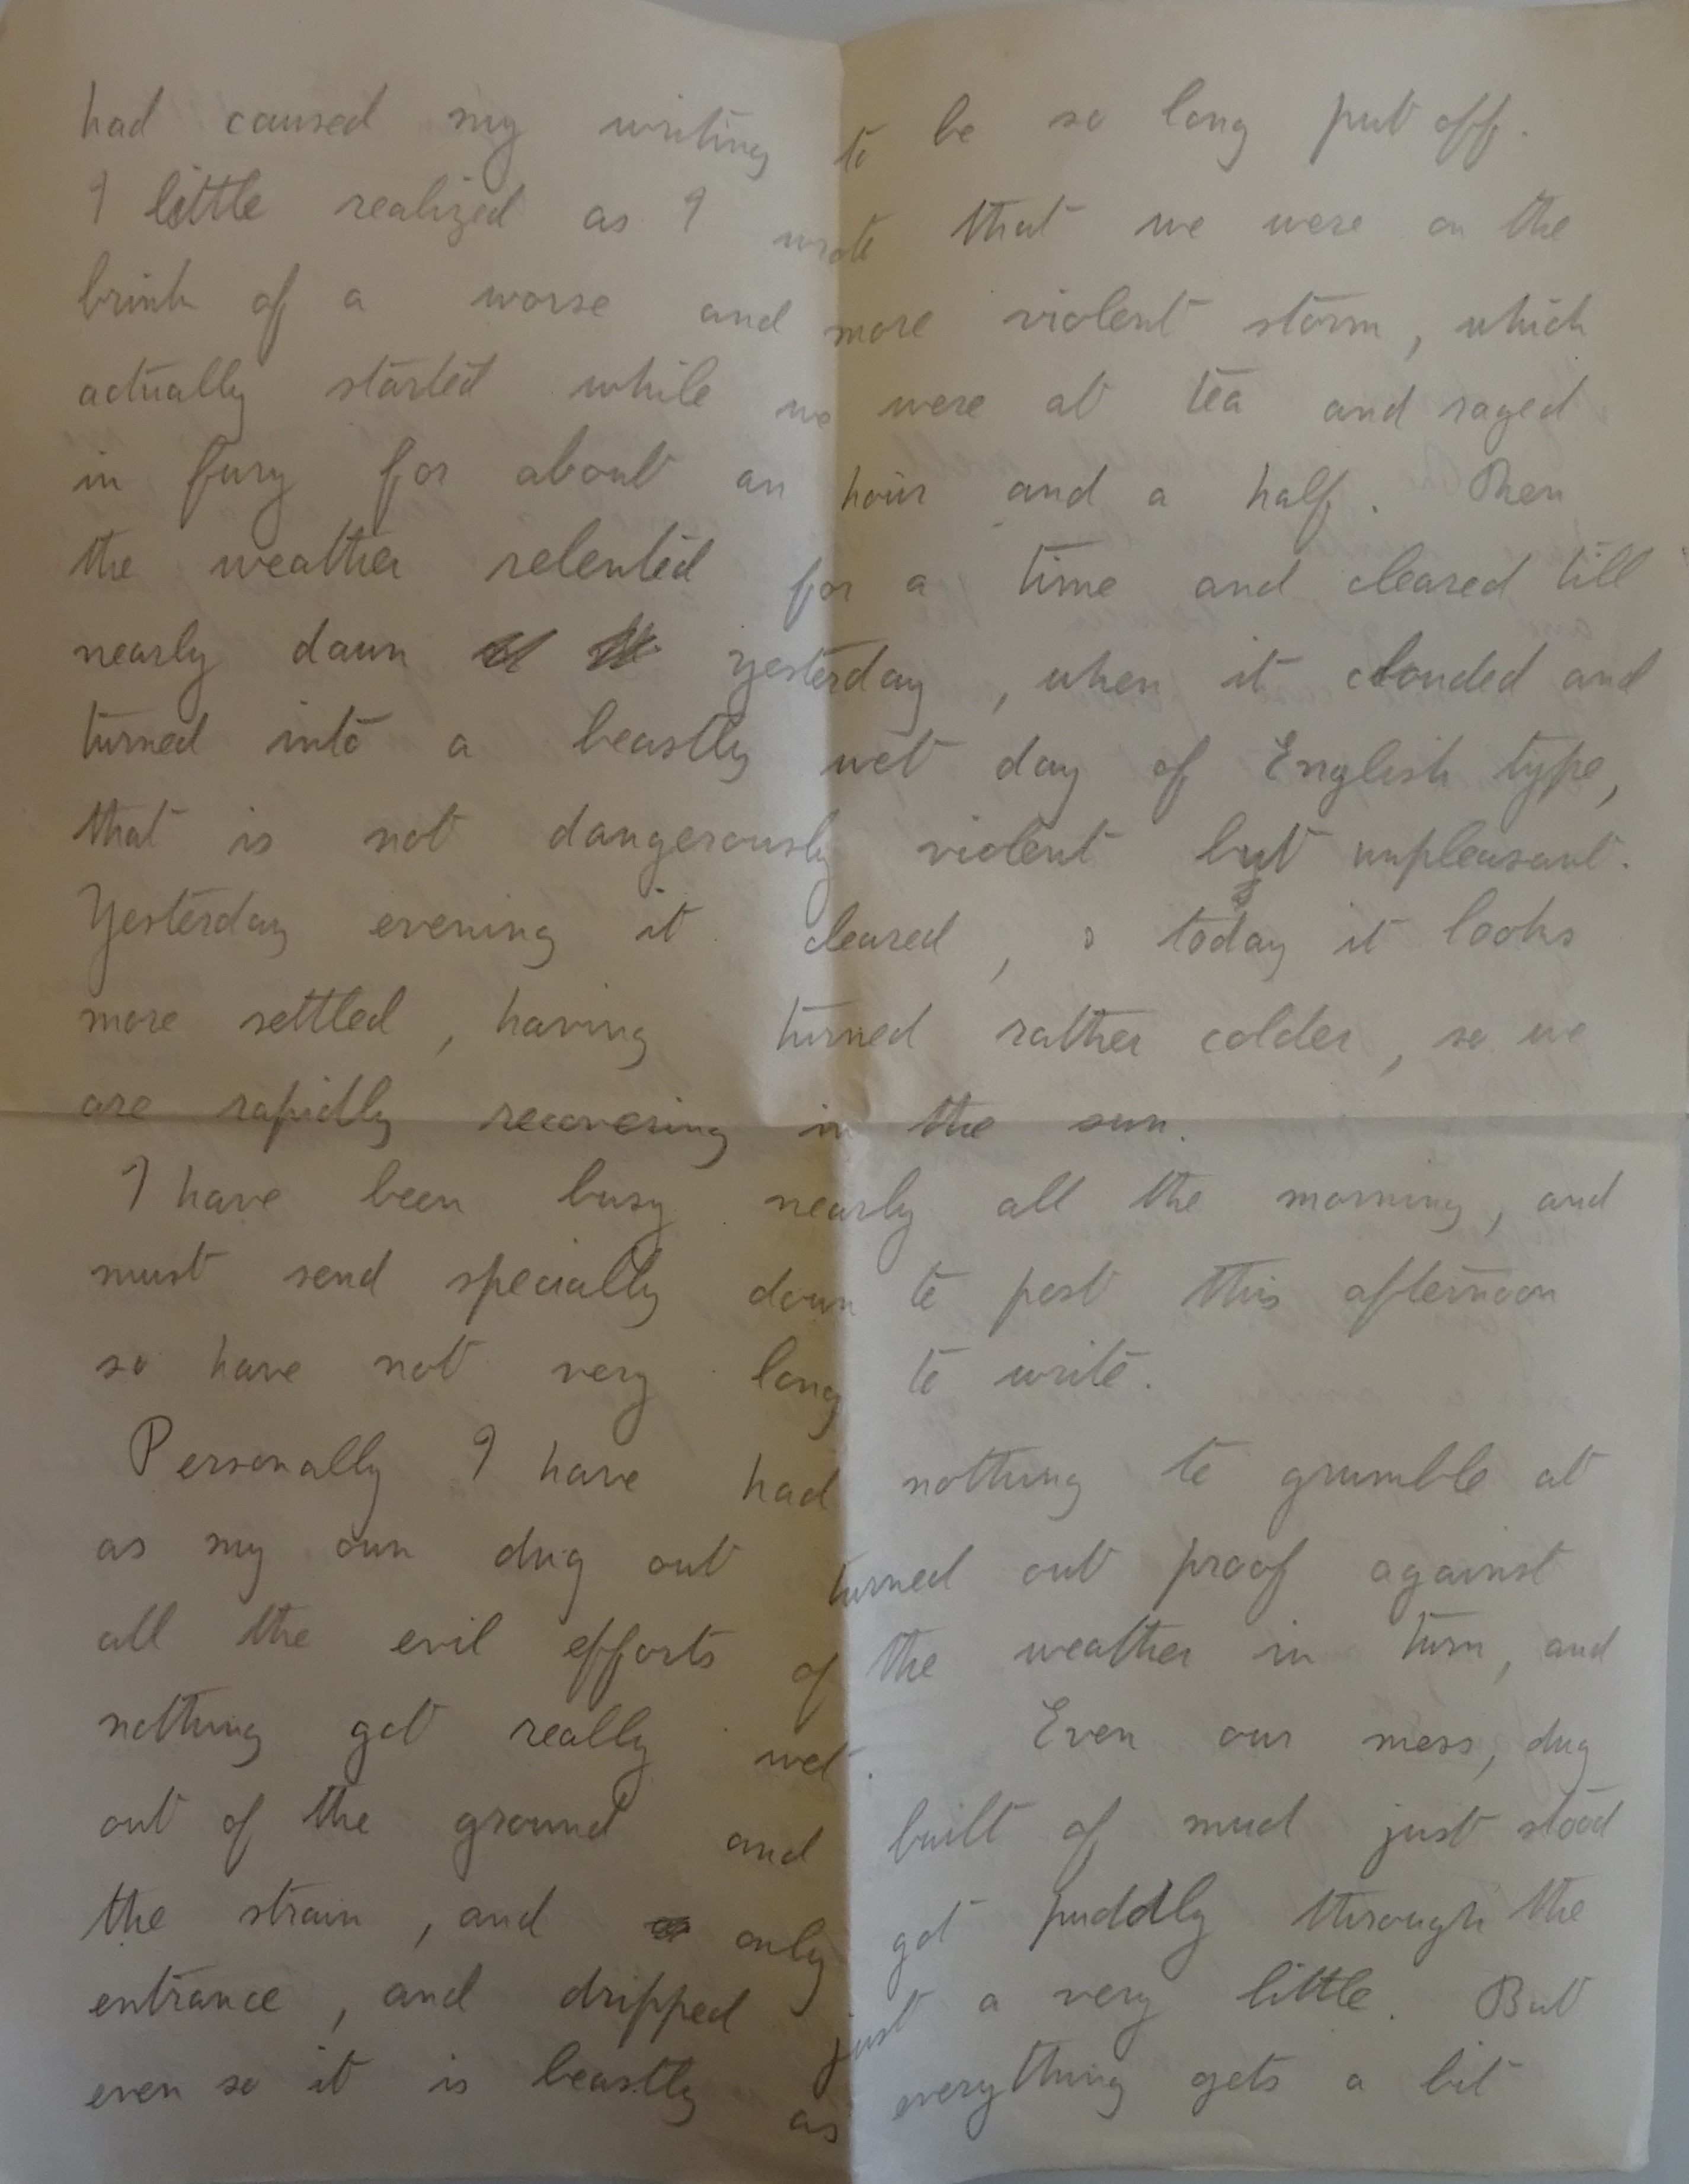 had caused my writing to be so long put off.
I little realized as I wrote that we were on the
brink of a worse and more violent storm, which
actually started while we were at tea and raged
in fury for about an hour and a half. Then
the weather relented for a time and cleared till
nearly dawn yesterday, when it clouded and
turned into a beastly wet day of English type,
that is not dangerously violent but unpleasant.
Yesterday evening it cleared, & today it looks
more settled, having turned rather colder, so we
are rapidly recovering in the sun.
I have been busy nearly all the morning, and
must send specially down to post this afternoon
so have not very long to write.
Personally I have had nothing to grumble at
as my own dug out turned out proof against
all the evil efforts of the weather in turn, and
nothing got really wet. Even our mess, dug
out of the ground and built of mud just stood
the strain, and only got puddly through the
entrance, and dripped just a very little. But
even so it is beastly as everything gets a bit